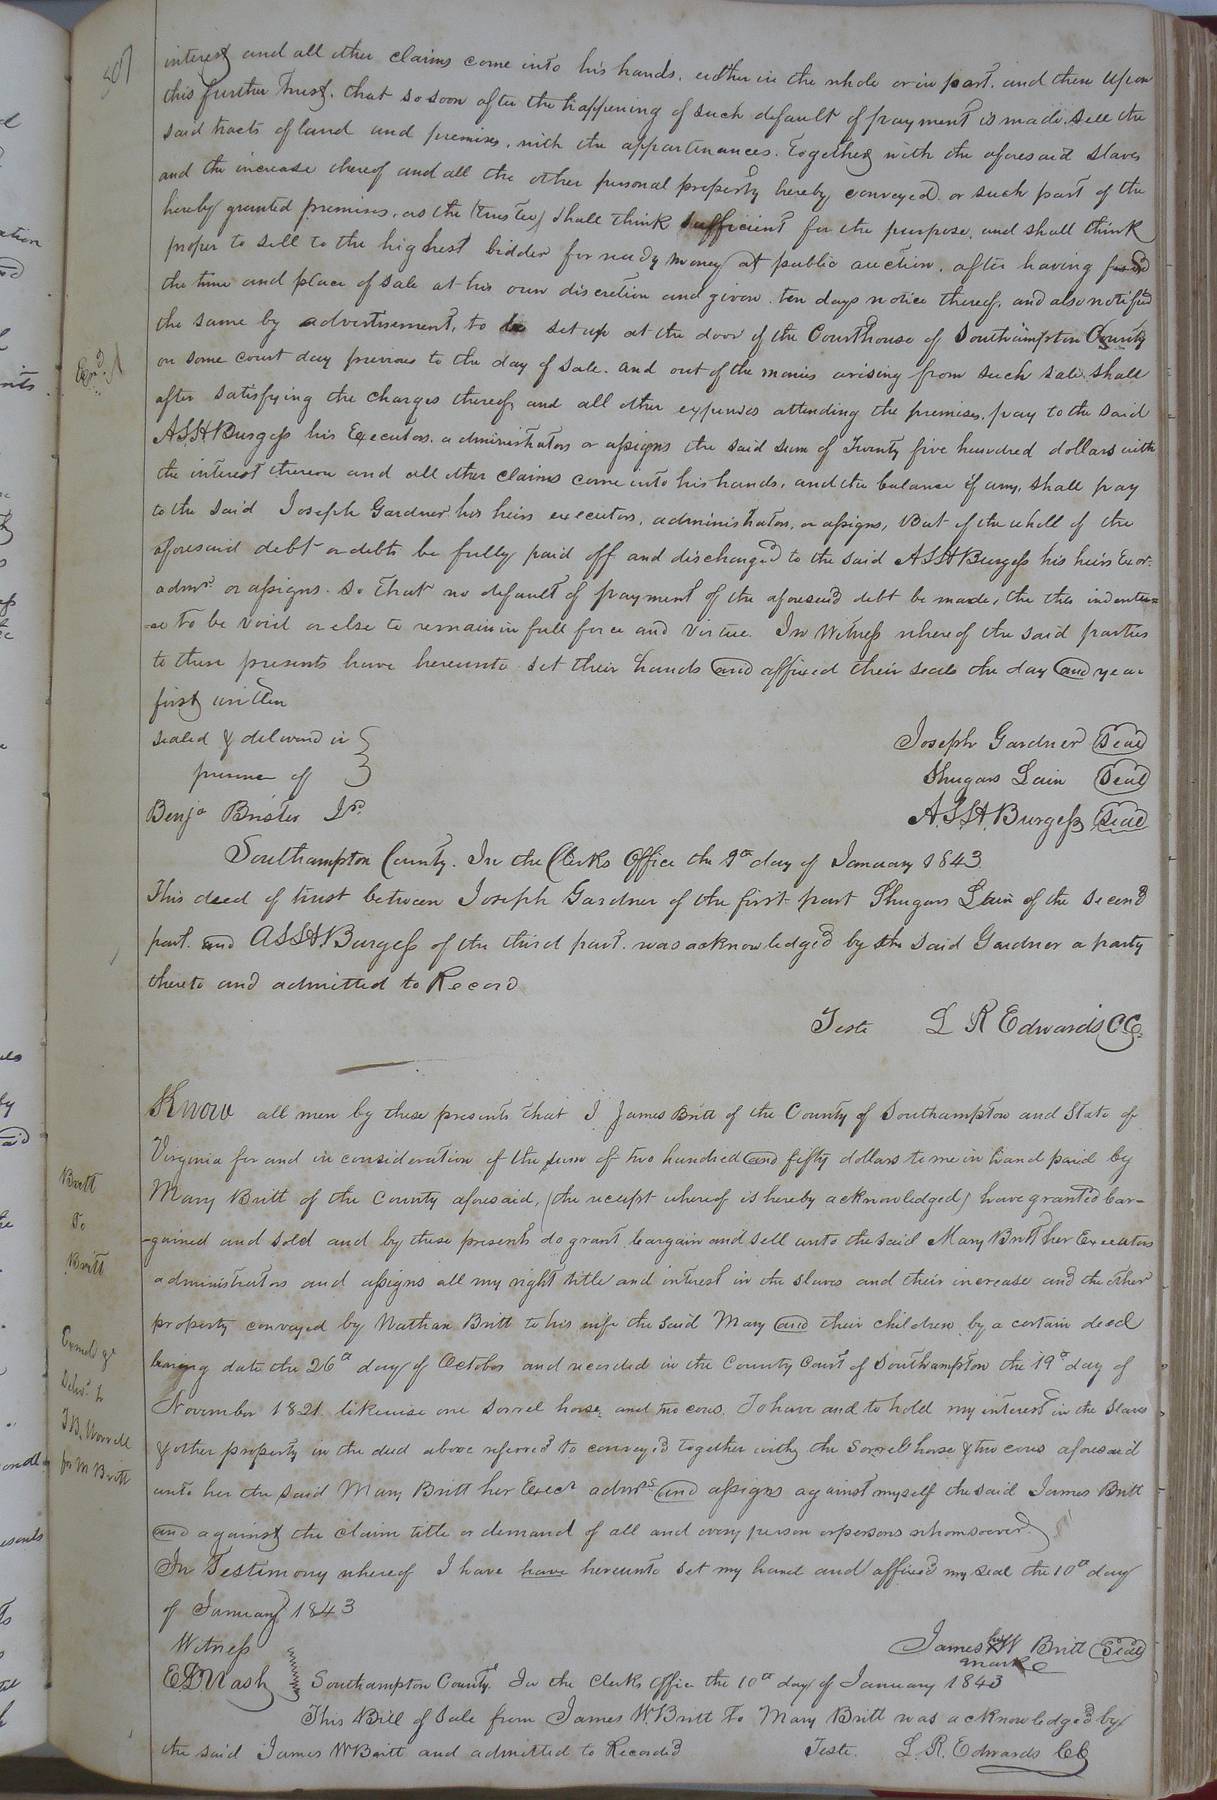 507
interest and all other claims come into his hands, either in the whole or in part, and then Upon
this further Trust, that so soon after the happening of such default of payment is made, sell the
said tracts of land and premises, with the appurtenances, together with the aforesaid slaves
and the increase thereof and all the other personal property hereby conveyed or such part of the
hereby granted premises, as the (trustee) shall think sufficient for the purpose, and shall think
proper to sell to the highest bidder for ready money at public auction, after having fixed
the time and place of sale at his own discretion and given ten days notice thereof, and also notified
the same by advertisement, to be set up at the door of the Courthouse of Southampton County
on some court day previous to the day of sale, and out of the monies arising from such sale shall
after satisfying the charges thereof and all other expenses attending the premises, pay to the said
ASSHBurgess his Executors, administrators or assigns the said sum of Twenty five hundred dollars with
the interest thereon and all other claims come into his hands, and the balance if any, shall pay
to the said Joseph Gardner his heirs executors, administrators, or assigns, But if the whole of the
aforesaid debt or debts be fully paid off and discharged to the said ASSHBurgess his heirs Exor.
admrs. or assigns. So that no default of payment of the aforesaid debt be made, the this indentu=
=re to be void or else to remain in full force and virtue. In Witness whereof the said parties
to these presents have hereunto set their hands and affixed their seals the day and year
first written
sealed & delivered in
presence of
Joseph Gardner Seal
Shugars Lain Seal
Benja Brister Jr. A.S.S.H. Burgess Seal
Southampton County. In the Clerks Office the 9th day of January 1843
This deed of trust between Joseph Gardner of the first part Shugars Lain of the second
part and ASSHBurgess of the third part was acknowledged by the said Gardner a party
thereto and admitted to Record
Teste L R Edwards CC
Know all men by these presents that I James Britt of the County of Southampton and State of
Virginia for and in consideration of the sum of two hundred and fifty dollars to me in hand paid by
Mary Britt of the County aforesaid, (the receipt whereof is hereby acknowledged) have granted bar-
-gained and sold and by these presents do grant bargain and sell unto the said Mary Britt her Executors
administrators and assigns all my right title and interest in the slaves and their increase and the other
property conveyed by Nathan Britt to his wife the said Mary and their children by a certain deed
bearing date the 26th day of October and recorded in the County Court of Southampton the 19th day of
November 1821 likewise one sorrel horse and two cows. To have and to hold my interest in the slaves
& other property in the deed above referred to conveyed together with the Sorrel horse & two cows aforesaid
unto her the said Mary Britt her Execr admrs and assigns against myself the said James Britt
and against the claim title or demand of all and every person or persons whomsoever.
In Testimony whereof I have have hereunto set my hand and affixed my seal the 10th day
of January 1843
Witness
James W Britt Seal
his
mark
EBNash
Southampton County. In the Clerks Office the 10th day of January 1843
This Bill of sale from James W Britt To Mary Britt was acknowledged by
the said James W Britt and admitted to Recorded Teste. L. R. Edwards CC
Britt
To
Britt
Delvd to
for M Britt